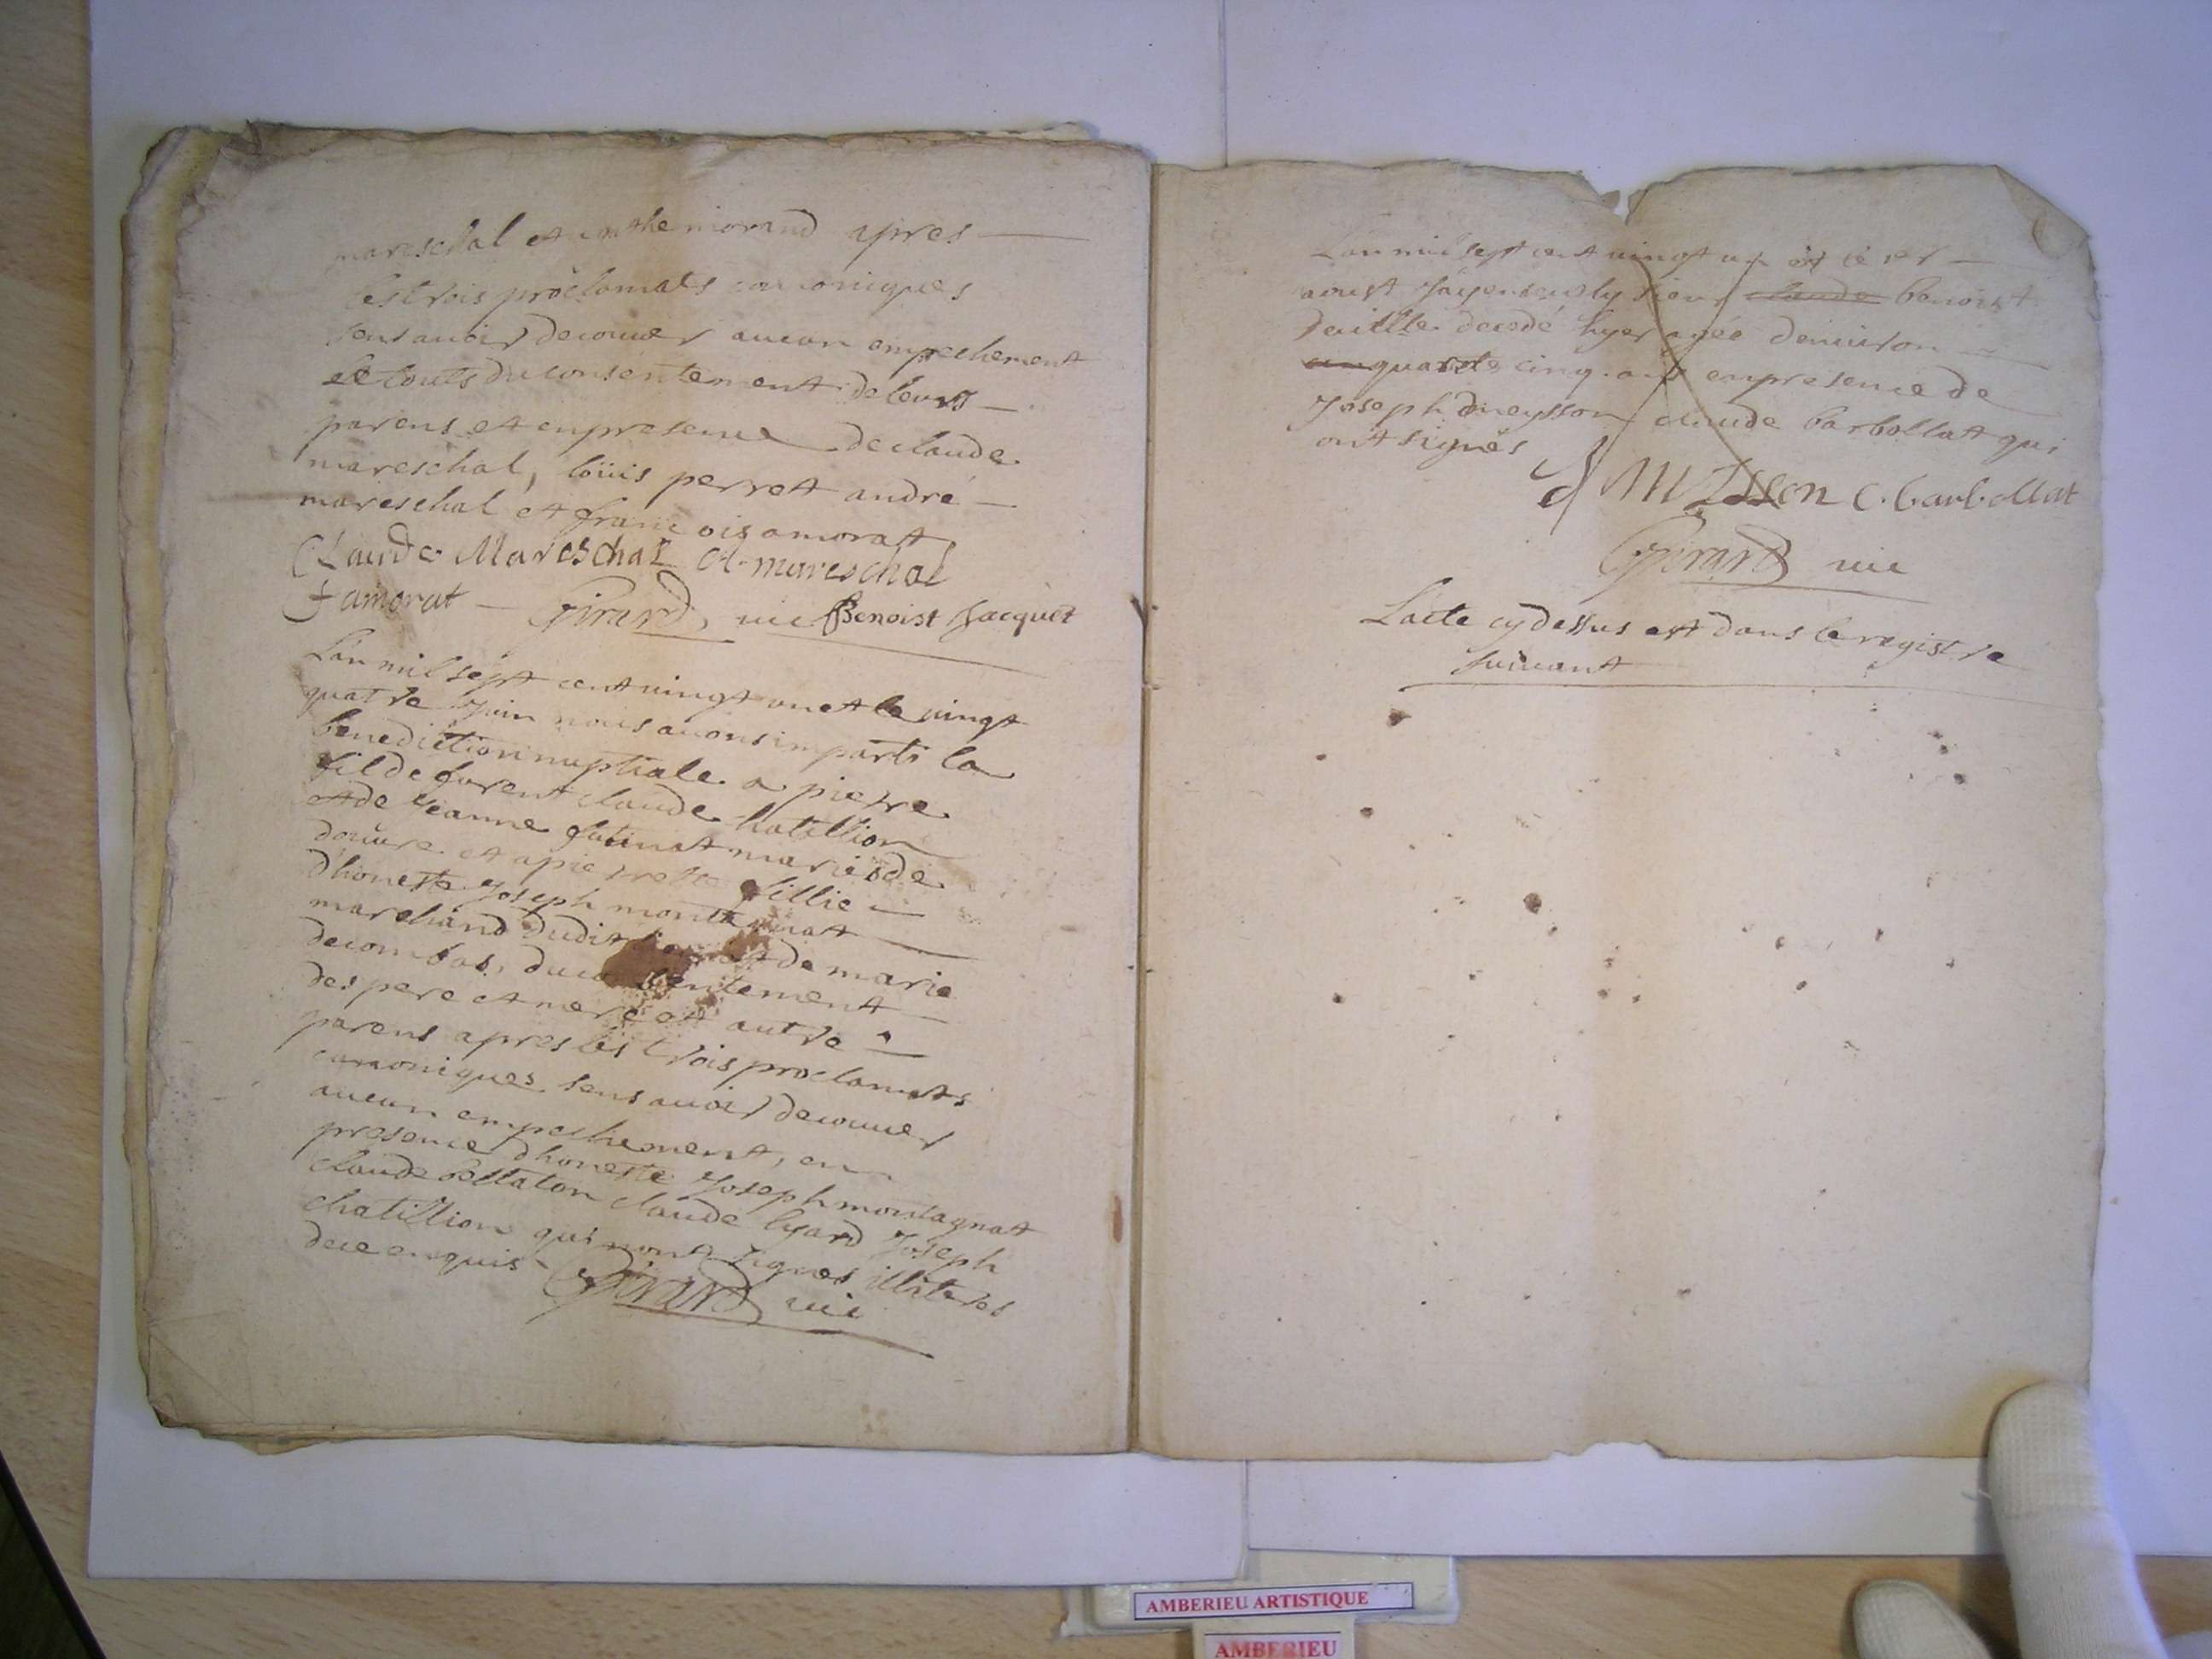 mareschal et anthe morand apres
les trois proclamats canoniques
sens avoir decouver aucun empechement
et touts du consentement de leurs
parens et en presence de claude
mareschal, loüis perret andré
mareschal et francois amorat
Claude Mareschal A mareschal
f amorat Girard, vic Benoist Jacquet
L'an mil sept cent vingt un et le vingt
quatre Juin nous avons imparti la
benediction nuptiale a pierre
fil de furent claude chatillion
et de Jeanne mariés de
douvre et a pierrette fillie
d'honeste Joseph montagnat
marchand dudit et de marie
decombas, du consentement
des pere et mere et autre
parens apres les trois proclamats
canoniques sens avoir decouver
aucun empechement, en
presence d'honeste Joseph montagnat
claude bellaton claude lyard Joseph
chatillion qui n'ont signes illiteres
de ce enquis Girard vic
L'an mil sept cent vingt un et le 1er
aoust Jay enseuely sieur claude benoist
decedé hyer agée d'environ
quarte cinq ans en presence de
Joseph claude barbollat qui
ont signés
C. barbollat
Girard vic
L'acte cy dessus est dans le registre
suivant
AMBERIEU ARTISTIQUE
AMBERIEU